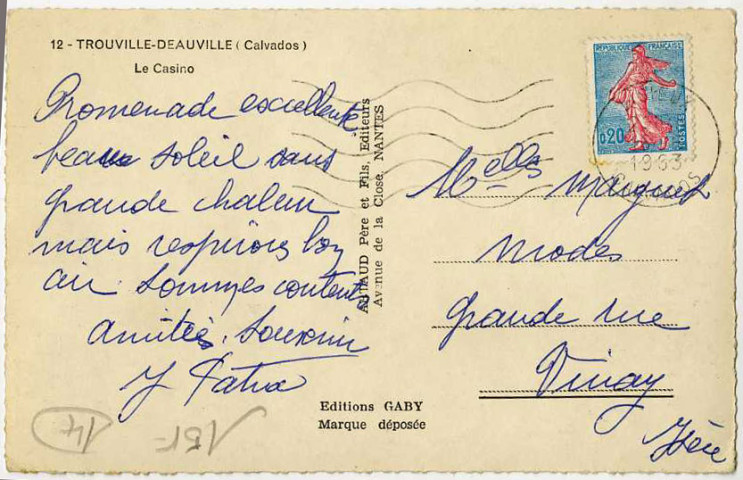 12 - TROUVILLE-DEAUVILLE (Calvados)
Le Casino
Promenade excellente,
beau soleil sans
grande chaleur
mais respirons bon
air. Sommes contents
amitiés, souvenir
J
ARTAUD Père et Fils, Editeurs
Avenue de la Close, NANTES
Editions GABY
Marque déposée
REPUBLIQUE FRANÇAISE
0,20
POSTES
1963
Melles
Modes
Grande rue
Vinay
Isère
14
15F